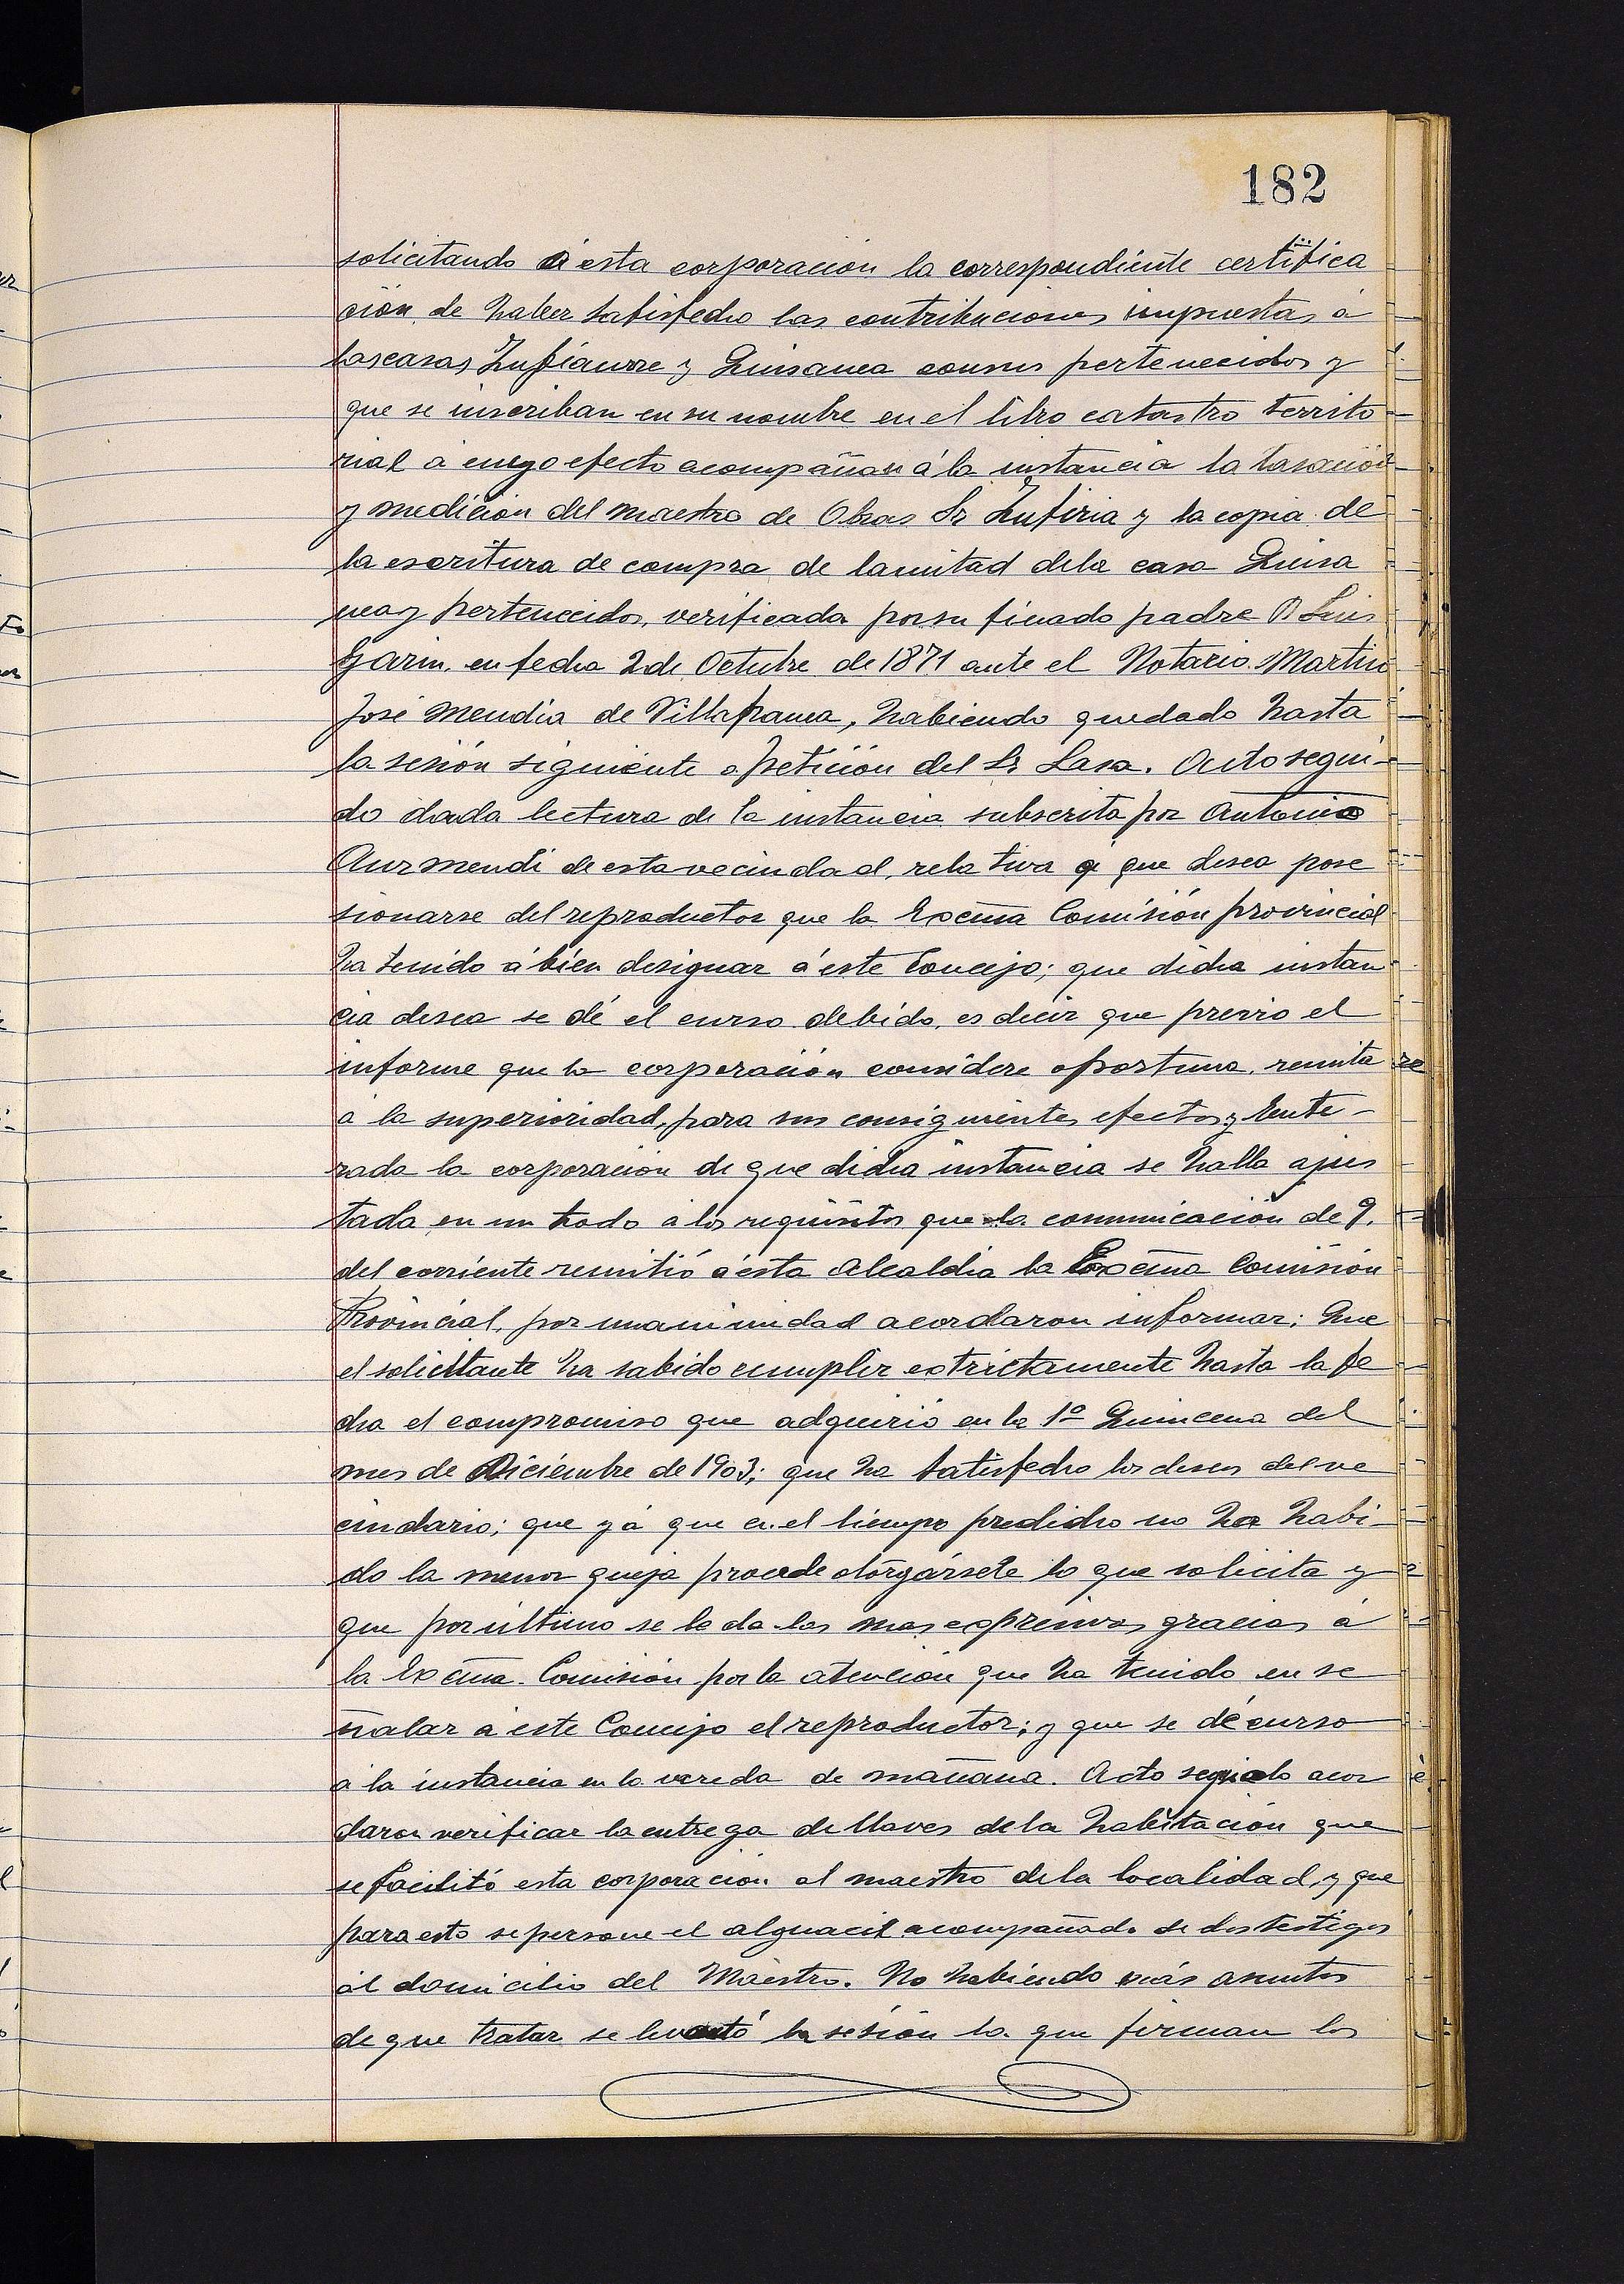 182
solicitando á esta corporación la correspondiente certifica
ción de haber satisfecho las contribuciones impuestas á
las casas Zufiaurre y Quisanea con sus pertenecidos y
que se inscriban en su nombre en el libro catastro territo
rial á cuyo efecto acompañan á la instancia la tasación
y medición del maestro de Obras Sr Zufiria y la copia de
la escritura de compra de la mitad de la casa Quisa
nea y pertenecidos, verificada por su finado padre D Luis
Garin, en fecha 2 de Octubre de 1871 ante el Notario Martin
José Mendia de Villafranca, habiendo quedado hasta
la sesión siguiente a petición del Sr Lasa. Acto segui-
do dada lectura de la instancia subscrita por Antonio
Aurmendi de esta vecindad, relativa á que desea pose
sionarse del reproductor que la Excma Comisión provincial
ha tenido á bien designar á este Concejo; que dicha instan
cia desea se dé el curso debido, es decir que previo el
informe que la corporación considere oportuno, remita se
á la superioridad, para sus consiguientes efectos y Ente-
rada la corporación de que dicha instancia se halla ajus
tada en un todo á los requisitos que la comunicación de 9.
del corriente remitió á esta Alcaldia la Excma Comisión
Provincial, por unanimidad acordaron informar: Que
el solicitante ha sabido cumplir estrictamente hasta la fe
cha el compromiso que adquirió en la 1ª Quincena del
mes de Diciembre de 1903; que ha satisfecho los deseos del ve
cindario; que yá que en el tiempo predicho no ha habi-
do la menor queja procede otorgársele lo que solicita y
que por último se le da las mas expresivas gracias á
la Excma. Comisión por la atención que ha tenido en se
ñalar á este Concejo el reproductor; y que se dé curso
á la instancia en la vereda de mañana. Acto seguido acor
daron verificar la entrega de llaves de la habitación que
se facilitó esta corporación al maestro de la localidad, y que
para esto se persone el alguacil acompañado de dos testigos
al domicilio del Maestro. No habiendo más asuntos
de que tratar se levantó la sesión la que firman los